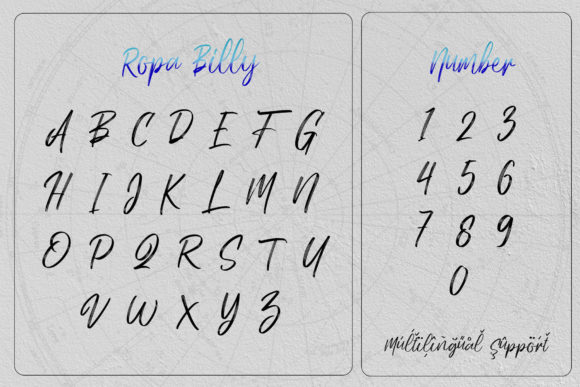 Ropa Billy
A B C D E F G
H I J K L M N
O P Q R S T U
V W X Y Z
Number
1 2 3
4 5 6
7 8 9
0
Múľťïļîñğůåĺ Şůppöŕť